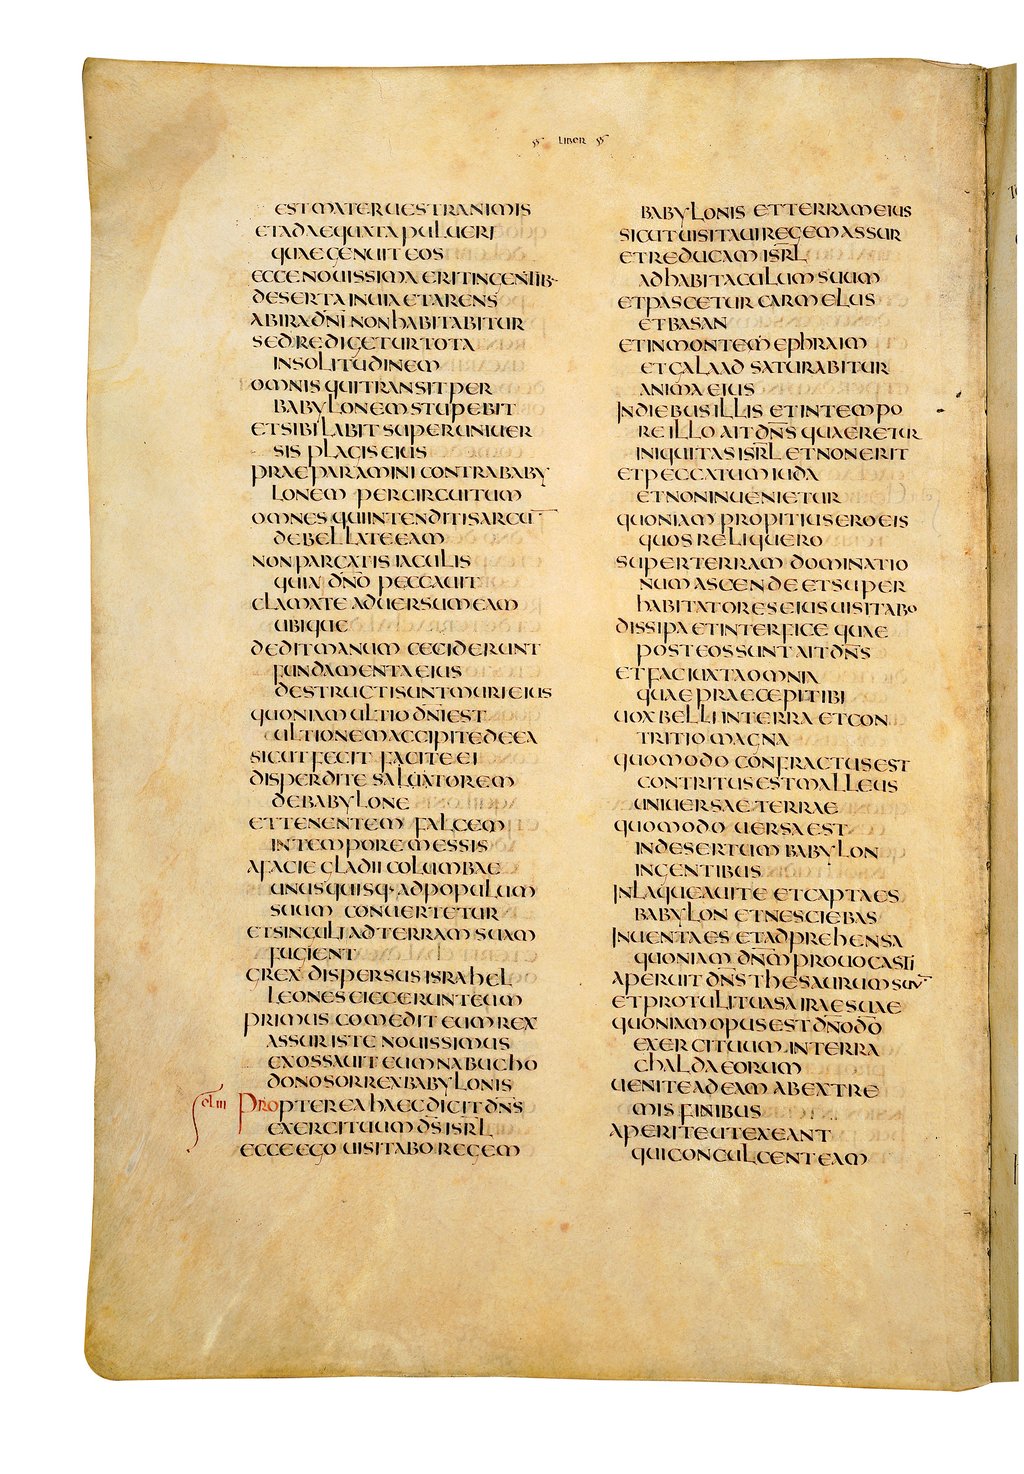 LIBER
EST MATER UESTRA NIMIS
ET ADAEQUATA PULUERI
QUAE GENUIT EOS
ECCE NOUISSIMA ERIT IN GENTIB·
DESERTA INUIA ET ARENS
AB IRA DN̄I NON HABITABITUR
SED REDIGETUR TOTA
IN SOLITUDINEM
OMNIS QUI TRANSIT PER
BABYLONEM STUPEBIT
ET SIBILABIT SUPER UNIUER
SIS PLAGIS EIUS
PRAEPARAMINI CONTRA BABY
LONEM PER CIRCUITUM
OMNES QUI INTENDITIS ARCŪ
DEBELLATE EAM
NON PARCATIS IACULIS
QUIA DN̄O PECCAUIT
CLAMATE ADUERSUM EAM
UBIQUE
DEDIT MANUM CECIDERUNT
FUNDAMENTA EIUS
DESTRUCTI SUNT MURI EIUS
QUONIAM ULTIO DN̄I EST
ULTIONEM ACCIPITE DE EA
SICUT FECIT FACITE EI
DISPERDITE SALUATOREM
DE BABYLONE
ET TENENTEM FALCEM
IN TEMPORE MESSIS
A FACIE GLADII COLUMBAE
UNUSQUISQ· AD POPULUM
SUUM CONUERTETUR
ET SINGULI AD TERRAM SUAM
FUGIENT
GREX DISPERSUS ISRAHEL
LEONES EIECERUNT EUM
PRIMUS COMEDIT EUM REX
ASSUR ISTE NOUISSIMUS
EXOSSAUIT EUM NABUCHO
DONOSOR REX BABYLONIS
PROPTEREA HAEC DICIT DN̄S
EXERCITUUM DS̄ ISRL̄
ECCE EGO UISITABO REGEM
BABYLONIS ET TERRAM EIUS
SICUT UISITAUI REGEM ASSUR
ET REDUCAM ISRL̄
AD HABITACULUM SUUM
ET PASCETUR CARMELUS
ET BASAN
ET IN MONTEM EPHRAIM
ET GALAAD SATURABITUR
ANIMA EIUS
IN DIEBUS ILLIS ET IN TEMPO
RE ILLO AIT DN̄S QUAERETUR
INIQUITAS ISRL̄ ET NON ERIT
ET PECCATUM IUDA
ET NON INUENIETUR
QUONIAM PROPITIUS ERO EIS
QUOS RELIQUERO
SUPER TERRAM DOMINATIO
NUM ASCENDE ET SUPER
HABITATORES EIUS UISITABO
DISSIPA ET INTERFICE QUAE
POST EOS SUNT AIT DN̄S
ET FAC IUXTA OMNIA
QUAE PRAECEPI TIBI
UOX BELLI IN TERRA ET CON
TRITIO MAGNA
QUOMODO CONFRACTUS EST
CONTRITUS EST MALLEUS
UNIUERSAE TERRAE
QUOMODO UERSA EST
IN DESERTUM BABYLON
IN GENTIBUS
INLAQUEAUI TE ET CAPTA ES
BABYLON ET NESCIEBAS
INUENTA ES ET ADPREHENSA
QUONIAM DN̄M PROUOCASTI
APERUIT DN̄S THESAURUM SUŪ
ET PROTULIT UASA IRAE SUAE
QUONIAM OPUS EST DN̄O DŌ
EXERCITUUM IN TERRA
CHALDAEORUM
UENITE AD EAM AB EXTRE
MIS FINIBUS
APERITE UT EXEANT
QUI CONCULCENT EAM